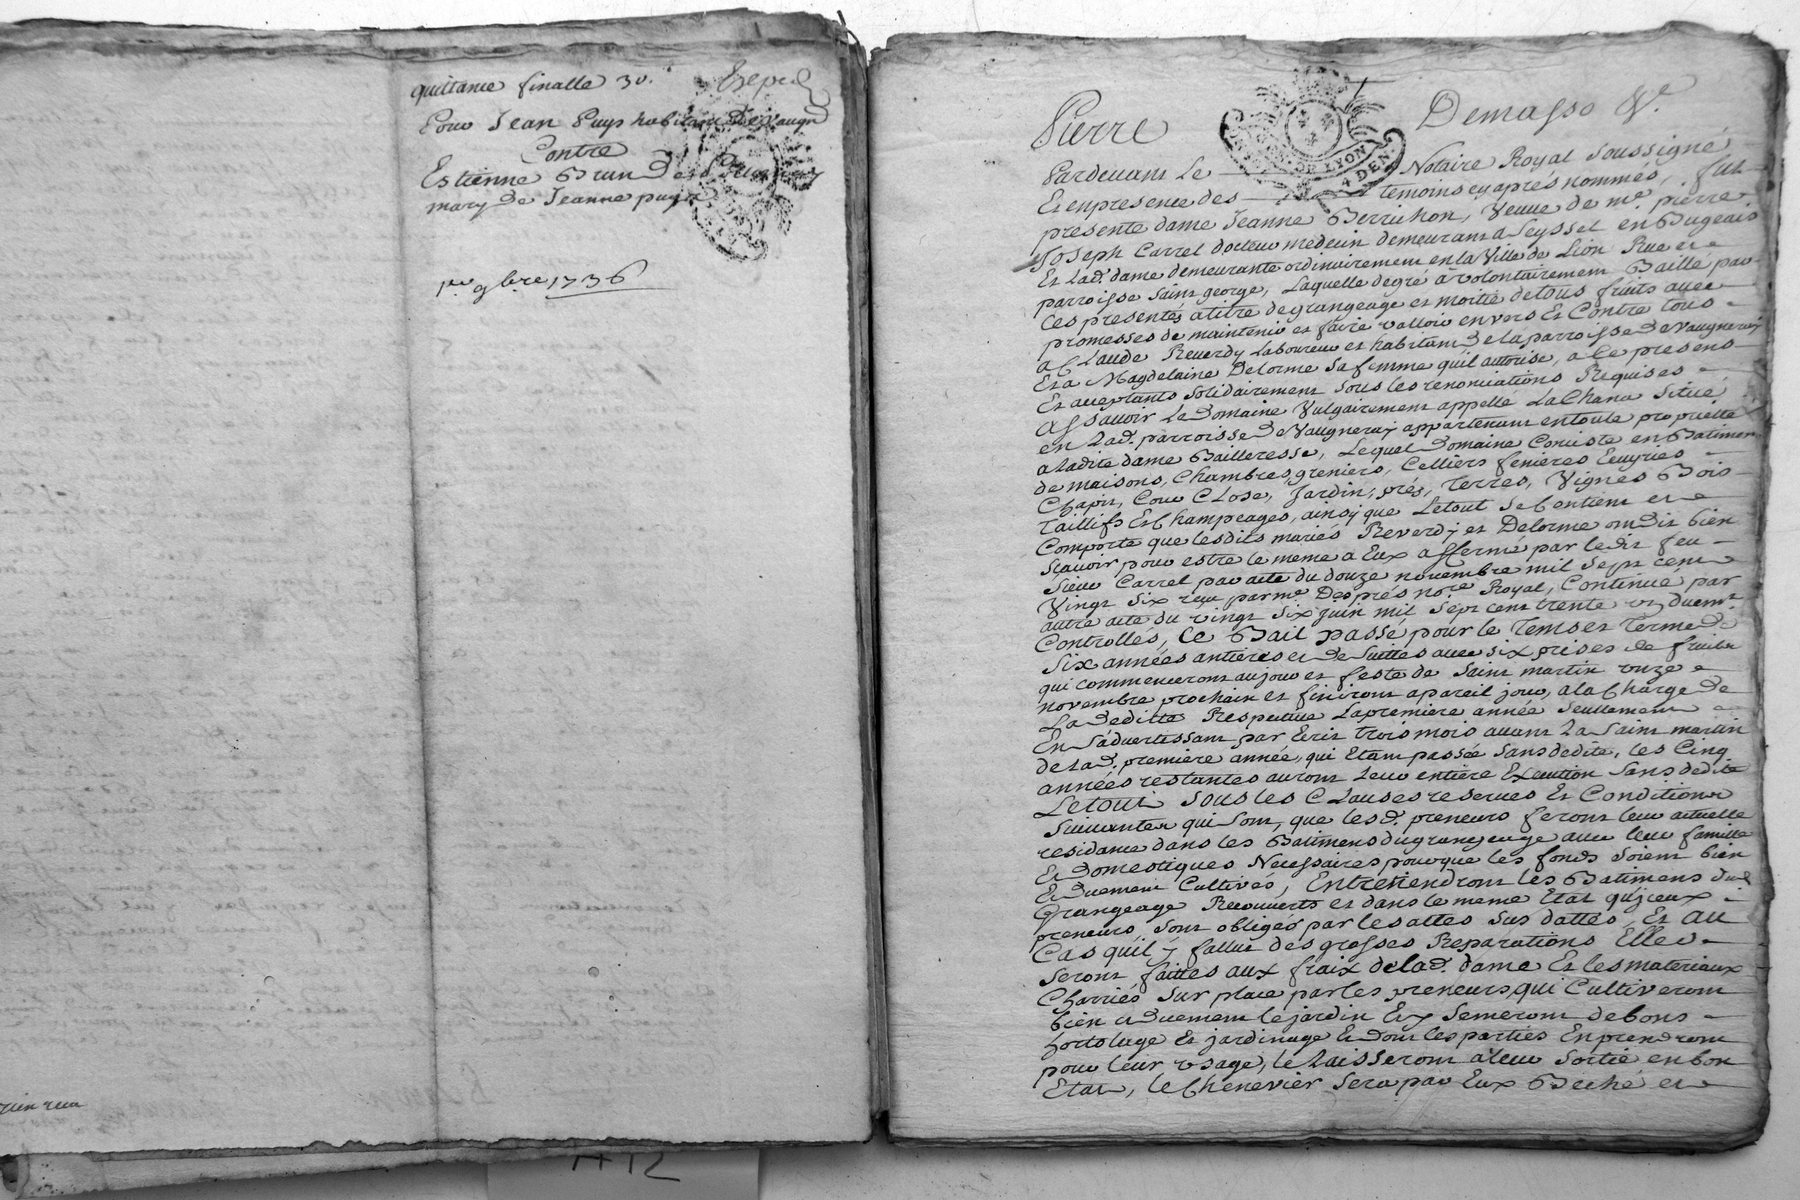 quittance finalle 30.s
Pour Jean Puys habitant de Vaugn
Contre
Estienne Brun de St
mary de Jeanne puys
1er 9bre 1736
Pierre Demasso Gr.
GEN. DE LYON
4 DEN.
Pardevant Le Notaire Royal Soussigné
Et en presence des temoins cy aprés nommés, fut
presente dame Jeanne Berruhon, Veuve de me. pierre
Joseph Carrel docteur medecin demeurant a Seyssel en Bugeais
Et Lad. dame demeurante ordinairement en la Ville de Lion Rue et
parroisse Saint george, Laquelle de gré à volontairement Baillé par
Ces presentes a titre de grangeage et moitié de tous fruits avec
promesses de maintenir et faire valloir envers Et Contre tous
a Claude Reverdy Laboureur et habitant de la parroisse de Vaugneray
Et a Magdelaine Delorme Sa femme quil autorise, a Ce presens
Et acceptants Solidairement Sous Les renonciations Requises
Assavoir Le Domaine Vulgairement appellé La Chana Situé
en Lad. parroisse de Vaugneray appartenant en toute proprieté
a ladite dame Bailleresse, Lequel Domaine Consiste en Batimen
de maisons, Chambres, greniers, Celliers fenieres Ecuyries
Chapit, Cour Close, Jardin, prés, Terres, Vignes Bois
Taillifs Et Champeages, ainsy que Letout Se Contient et
Comporte que lesdits mariés Reverdy et Delorme ont dit bien
Scavoir pour estre le meme a Eux affermé par ledit feu
Sieur Carrel par acte du douze novembre mil Sept cent
Vingt Six receu par me Després nore Royal, Continué par
autre acte du vingt Six juin mil Sept cent trente un duemt.
Controllés, Ce Bail passé pour le Tems et Terme de
Six années antieres et de Suittes avec six prises de fruits
qui commenceront au jour et feste de Saint martin onze
novembre prochain et finiront a pareil jour, a la Charge de
La deditte Respective La premiere année Seullement
En S'advertissant par Ecrit trois mois avant La Saint martin
de Lad. premiere année, qui Etant passée Sans dedite, les Cinq
années restantes auront Leur entiere Execution Sans dedite
Letout Sous les Clauses reserves Et Conditions
Suivantes qui Sont, que les d. preneurs feront leur actuelle
residance dans les Batimens du grangeage avec leur famille
Et domestiques Necessaires pour que les fonds Soient bien
Et duement Cultivés, Entretiendront les Batimens dud
Grangeage Recouverts et dans le meme Etat qu'jceux
preneurs Sont obligés par les actes Sus dattés, Et au
Cas quil y fallut des grosses Reparations Elles
Seront faittes aux fraix de lad. dame Et les materiaux
Charriés Sur place par les preneurs, qui Cultiveront
bien et duement le jardin Et y Semeront de bons
hortolage Et jardinage Et dont les parties En prendront
pour leur usage, le Laisseront a leur Sortie en bon
Etat, le Chenevier Sera par Eux Beché et